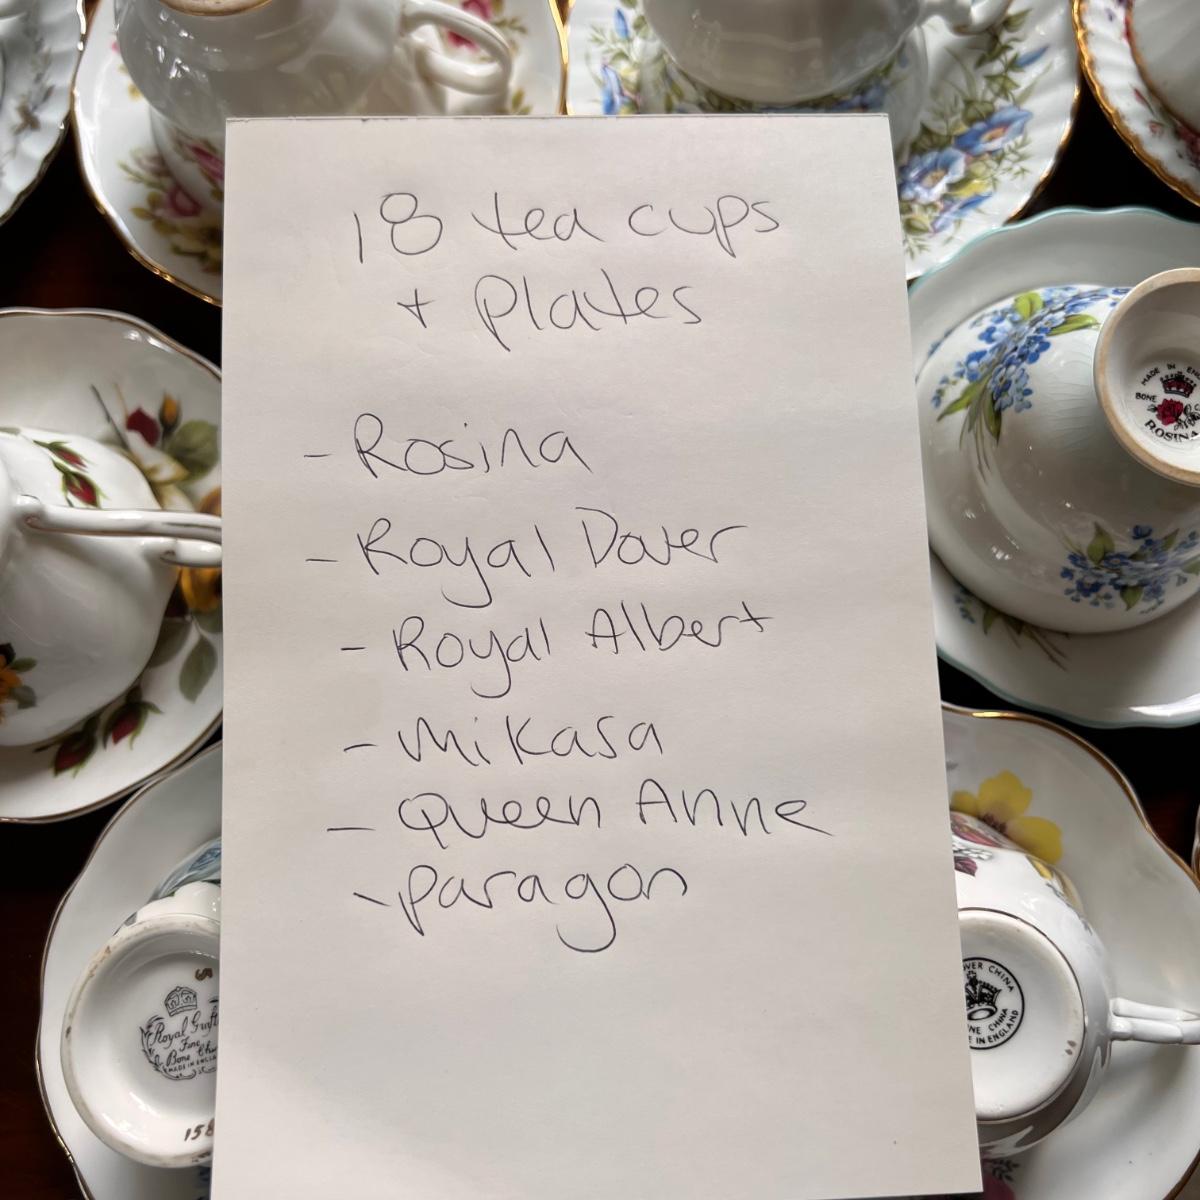 18 tea cups
+ Plates
- Rosina
- Royal Dover
- Royal Albert
- Mikasa
- Queen Anne
- Paragon
MADE IN
BONE
ROSINA
Royal
Fine
Bone
MADE IN
158
CHINA
CHINA
IN ENGLAND